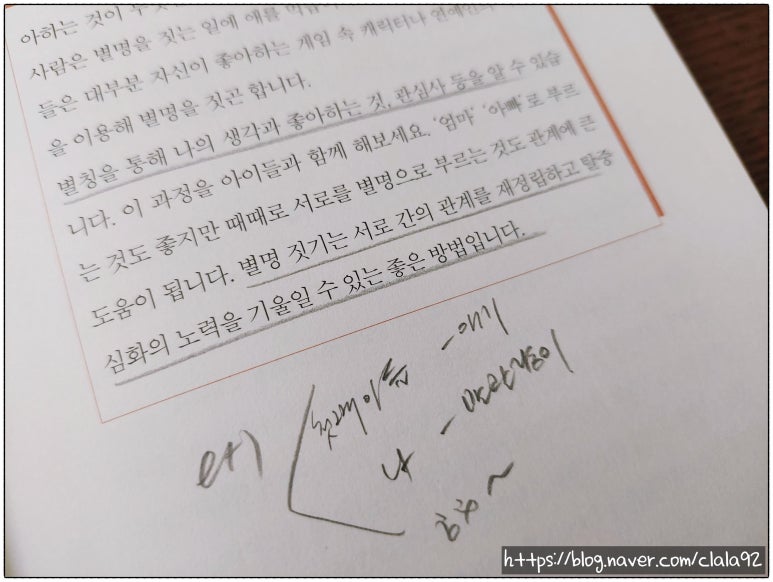 아하는 것이
사람은 별명을 짓는 일에 애를
들은 대부분 자신이 좋아하는 게임 속 캐릭터나 연예인
을 이용해 별명을 짓곤 합니다.
별칭을 통해 나의 생각과 좋아하는 것, 관심사 등을 알 수 있습
니다. 이 과정을 아이들과 함께 해보세요. '엄마' '아빠'로 부르
는 것도 좋지만 때때로 서로를 별명으로 부르는 것도 관계에 큰
도움이 됩니다. 별명 짓기는 서로 간의 관계를 재정립하고 탈중
심화의 노력을 기울일 수 있는 좋은 방법입니다.
첫째아들 - 애기
나 -
https://blog.naver.com/clala92